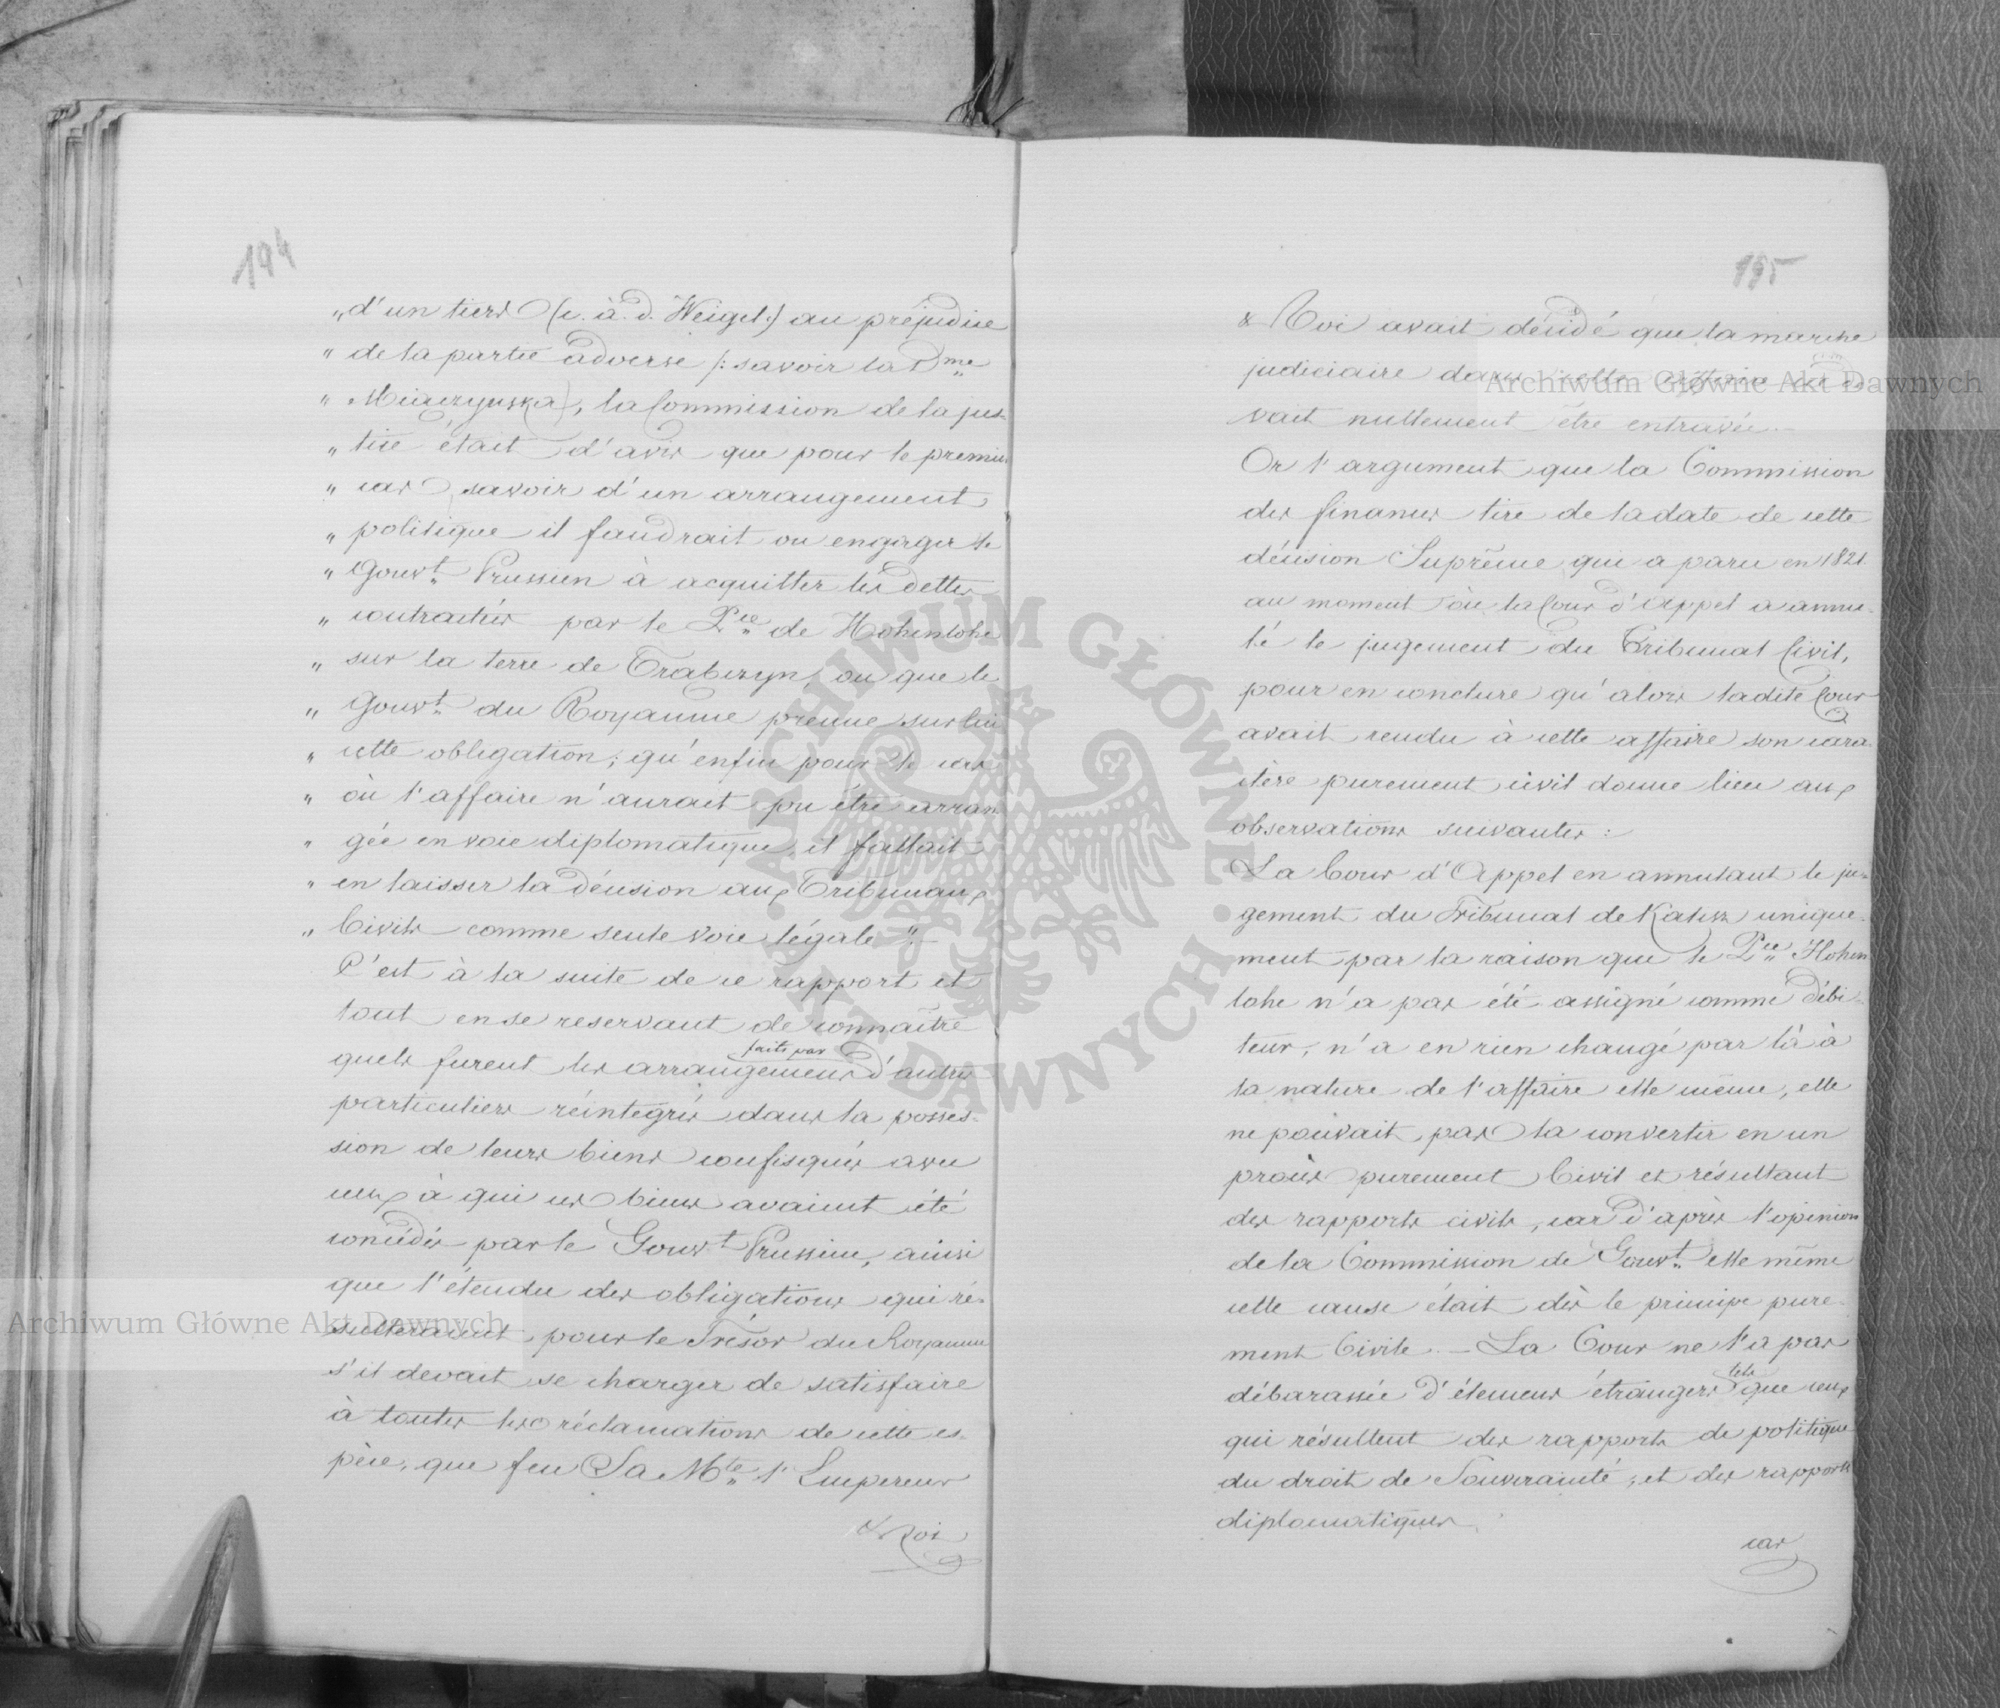 194
„ d'un tiers (c. à. d. Weigel.) au préjudice
„ de la partie adverse /: savoir la Dme
„ Miaczynska), la Commission de la jus-
„ tice était d'avis que pour le premier
„ cas savoir d'un arrangement
„ politique il faudrait ou engager le
„ Gouvt Prussien à acquitter les dettes
„ contractées par le Pce de Hohenlohe
„ sur la terre de Trabczyn, ou que le
„ Gouvt du Royaume prenne sur lui
„ cette obligation; qu'enfin pour le cas
„ où l'affaire n'aurait pu être arran-
„ gée en voie diplomatique, il fallait
„ en laisser la décision aux Tribunaux
„ Civils comme seule voie légale".-
C'est à la suite de ce rapport et
tout en se reservant de connaître
quels furent les arrangemens faits par d'autres
particuliers réintegrés dans la posses-
sion de leurs biens confisqués avec
ceux à qui ces biens avaient été
concédés par le Gouvt Prussien, ainsi
que l'étendue des obligations qui ré-
sulteraient pour le Trésor du Royaume
s'il devait se charger de satisfaire
à toutes les réclamations de cette es-
pèce, que feu Sa Mté l'Empereur
& Roi
195
& Roi avait décidé que la marche
judiciaire dans cette affaire ne de-
vait nullement être entravée.-
Or l'argument que la Commission
des finances tire de la date de cette
décision Suprême qui a paru en 1821
au moment où la Cour d'Appel a annu-
lé le jugement du Tribunal Civil,
pour en conclure qu'alors ladite Cour
avait rendu à cette affaire son cara-
ctère purement civil donne lieu aux
observations suivantes:
La Cour d'Appel en annulant le ju-
gement du Tribunal de Kalisz unique-
ment par la raison que le Pce Hohen
lohe n'a pas été assigné comme débi-
teur, n'a en rien changé par là à
la nature de l'affaire elle même, elle
ne pouvait pas la convertir en un
procès purement Civil et résultant
des rapports civils, car d'après l'opinion
de la Commission de Gouvt elle même
cette cause était dès le principe pure-
ment Civile.- La Cour ne l'a pas
débarassée d'élemens étrangers tels que ceux
qui résultent des rapports de politique
du droit de Souveraineté, et des rapports
diplomatiques.
car
Archiwum Główne Akt Dawnych
Archiwum Główne Akt Dawnych
ARCHIWUM GŁÓWNE AKT DAWNYCH